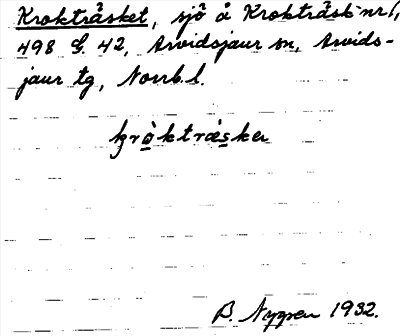 Krokträsket, sjö å Krokträsk nr 1,
498 G. 42, Arvidsjaur sn, Arvids-
jaur tg, Norrb. l.
kròktræsker
B. Nygren 1932.